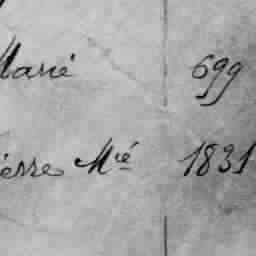 Marié 699
ierre Mié 1831